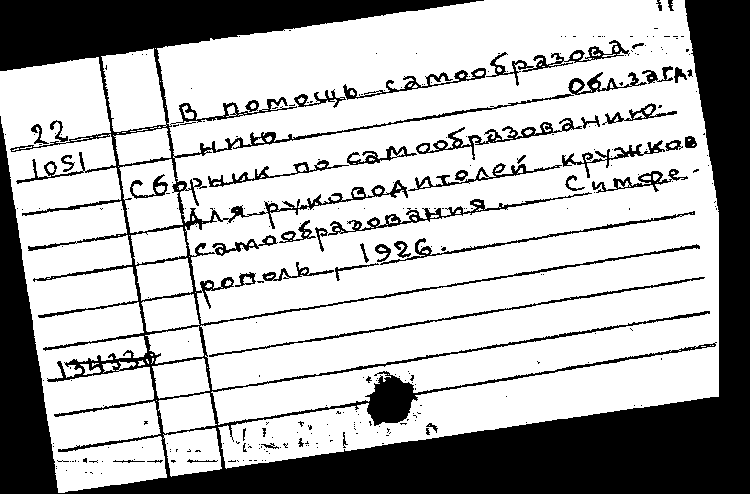 22
1051
В помощь самообразова-
нию.
Обл. загл.
Сборник по самообразованию
для руководителей кружков
самообразования. Симфе-
рополь, 1926.
134330